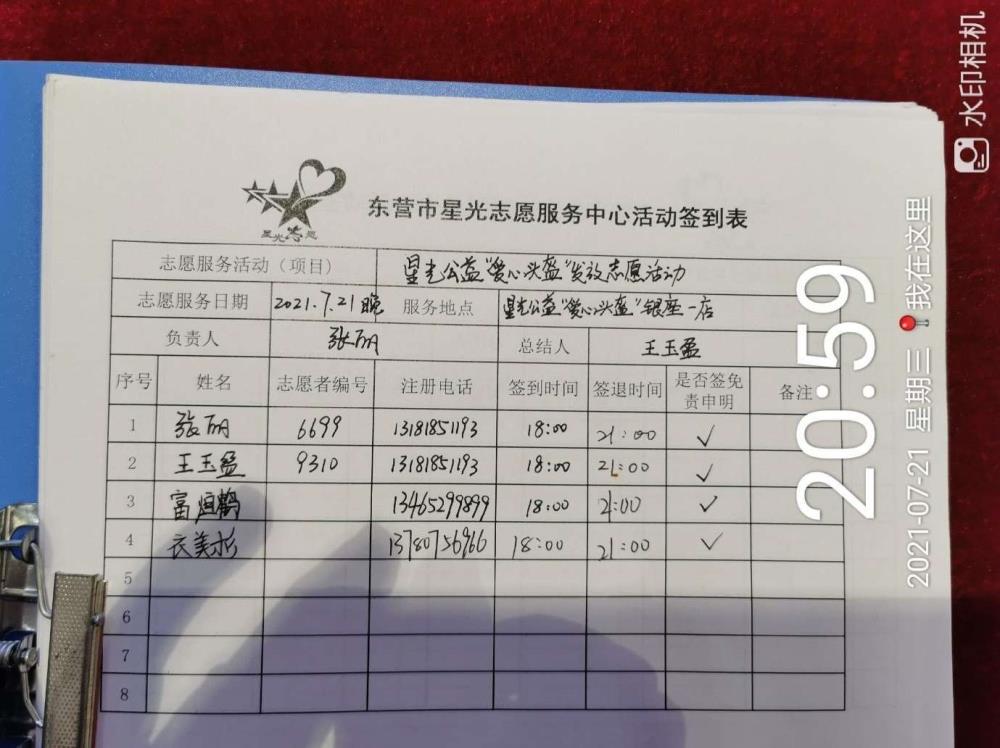 星光志愿
东营市星光志愿服务中心活动签到表
志愿服务活动（项目） 星光公益“爱心头盔”发放志愿活动
志愿服务日期 2021.7.21晚 服务地点 星光公益“爱心头盔”银座一店
负责人 张丽 总结人 王玉盈
序号 姓名 志愿者编号 注册电话 签到时间 签退时间 是否签免责申明 备注
1 张丽 6699 13181851193 18:00 21:00 ✓
2 王玉盈 9310 13181851193 18:00 21:00 ✓
3 富恒鹤 13465299899 18:00 21:00 ✓
4 衣美杉 13780756966 18:00 21:00 ✓
5
6
7
8
水印相机
20:59
2021-07-21 星期三 我在这里